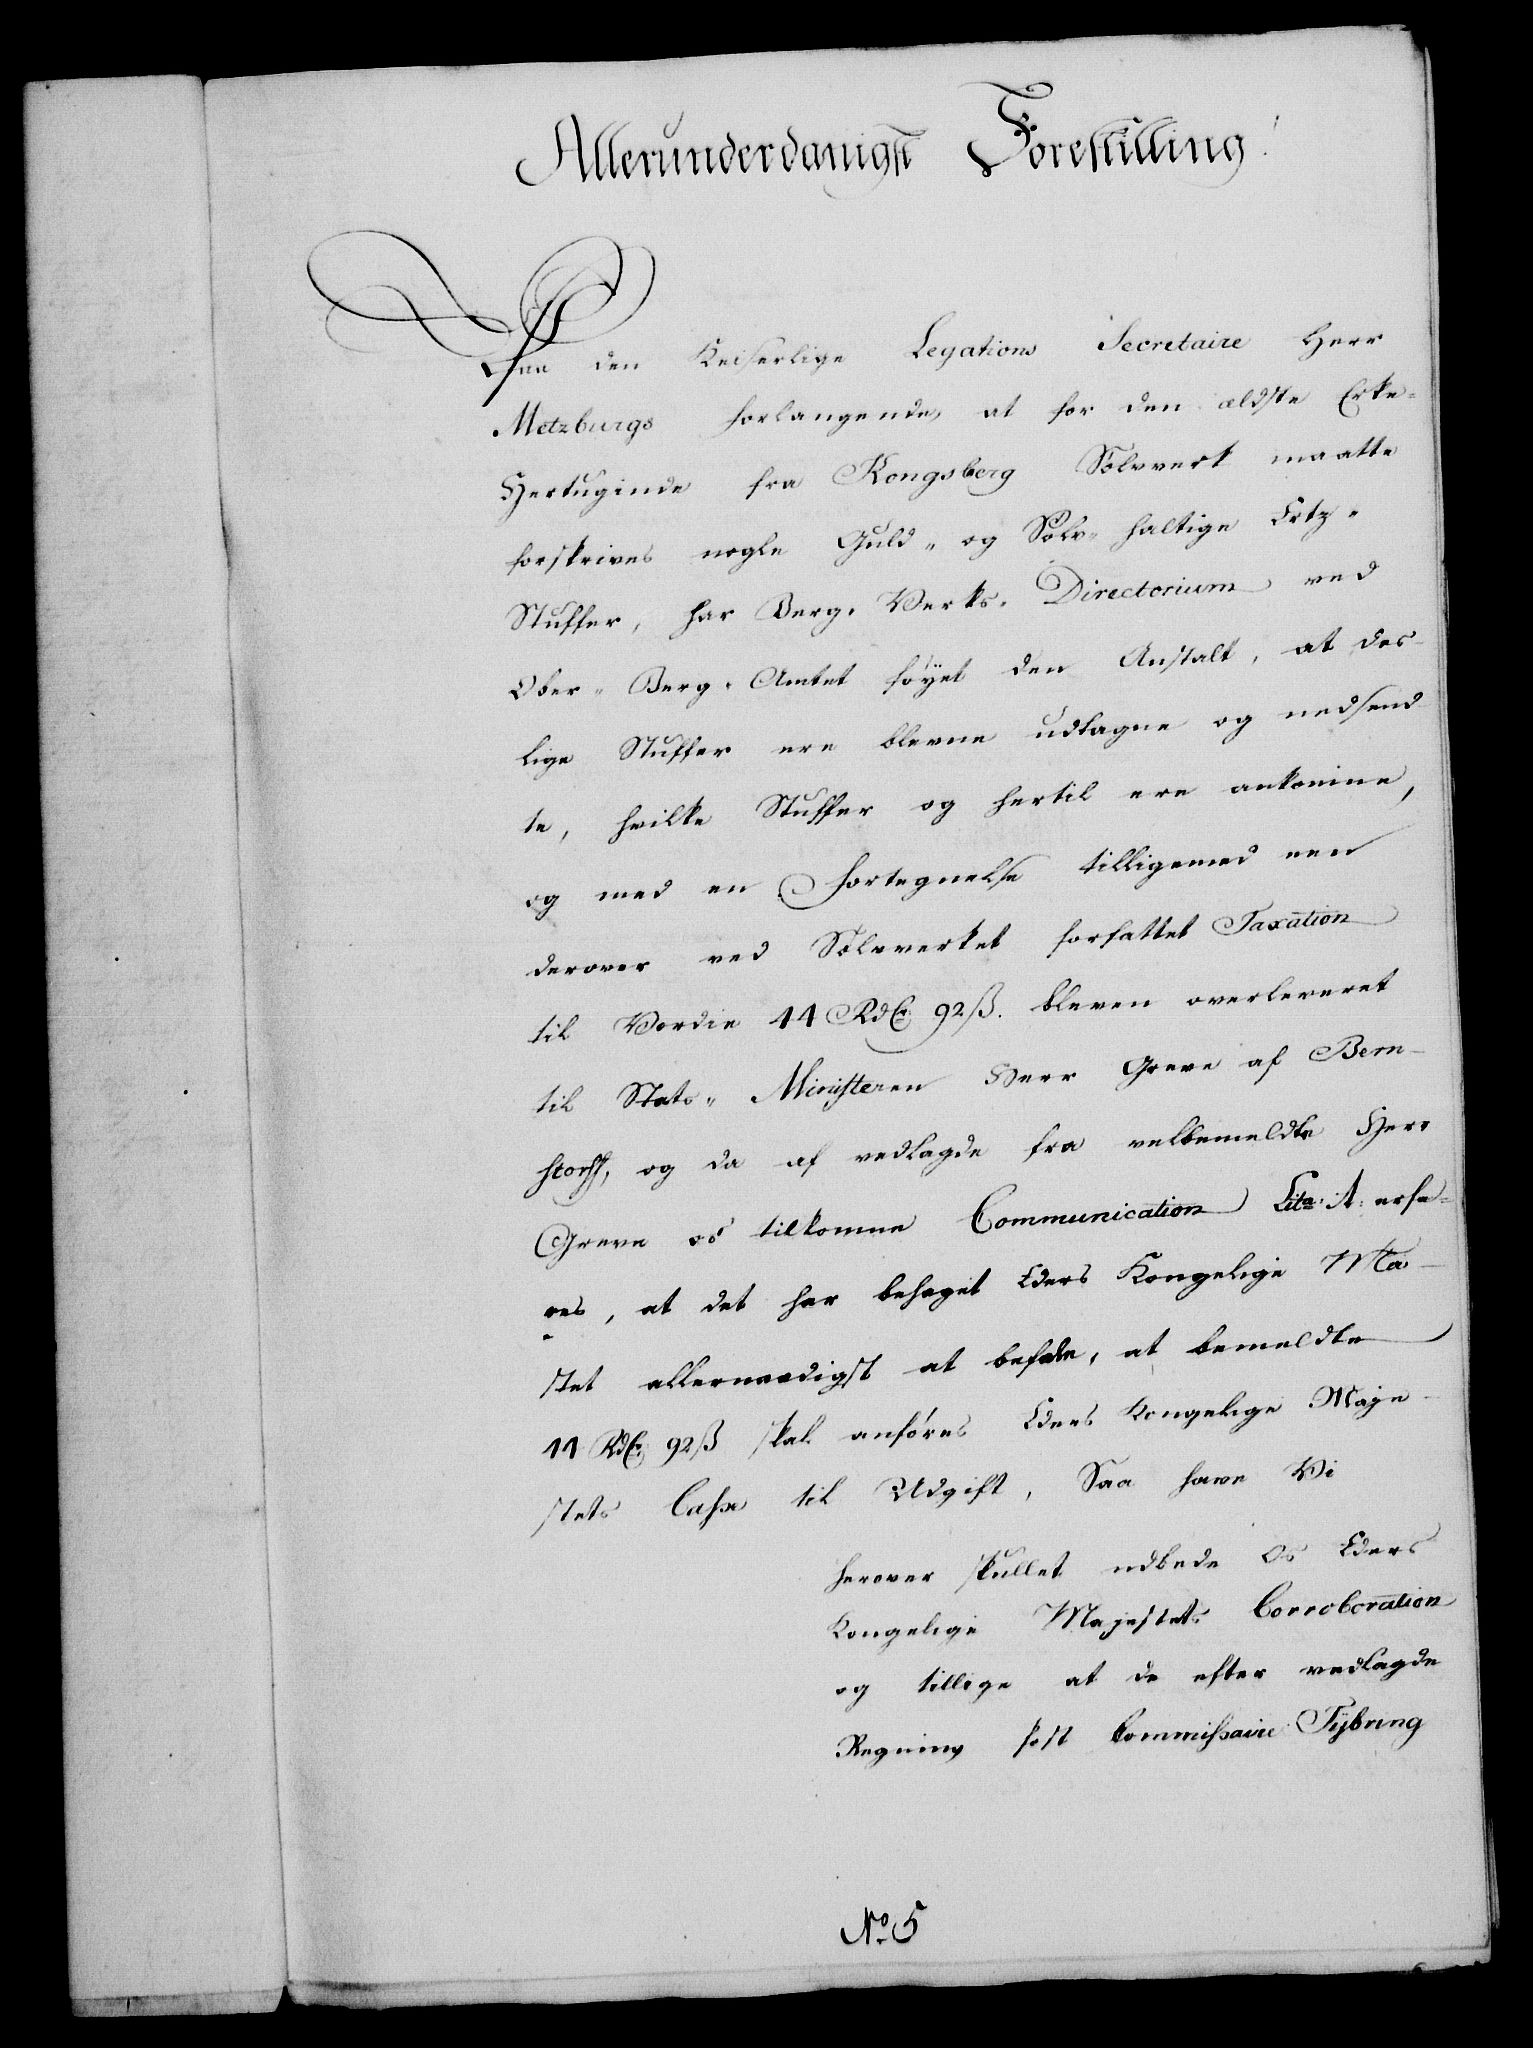 Allerunderdanigst Forestilling!
Paa den Keiserlige Legations Secretaire Herr
Metzburgs Forlangende, at for den ældste Erke-
Hertuginde fra Kongsberg Sølvverk maatte
forskrives nogle Guld- og Sølv-haltige Ertz-
Stuffer, har Berg-Verks-Directorium ved
Ober-Berg-Amtet føyet den Anstalt, at des-
lige Stuffer ere blevne udtagne og nedsend-
te, hvilke Stuffer og hertil ere ankomne,
og med en Fortegnelse tilligemed een
derover ved Sølvverket forfattet Taxation
til Verdie 11 Rdlr 92 ß. bleven overleveret
til Stats-Ministeren Herr Greve af Bern-
storff, og da af vedlagde fra velbemeldte Herr
Greve os tilkomne Communication Lita. A: erfa-
res, at det har behaget Eders Kongelige Ma-
stet allernaadigst at befale, at bemeldte
11 Rdlr 92 ß skal anføres Eders Kongelige Maje-
stets Casse til Udgift, Saa have Vi
herover skullet udbede Os Eders
Kongelige Majestets Corroboration
og tillige at de efter vedlagde
Regning først Commissaire Tybring
No. 5